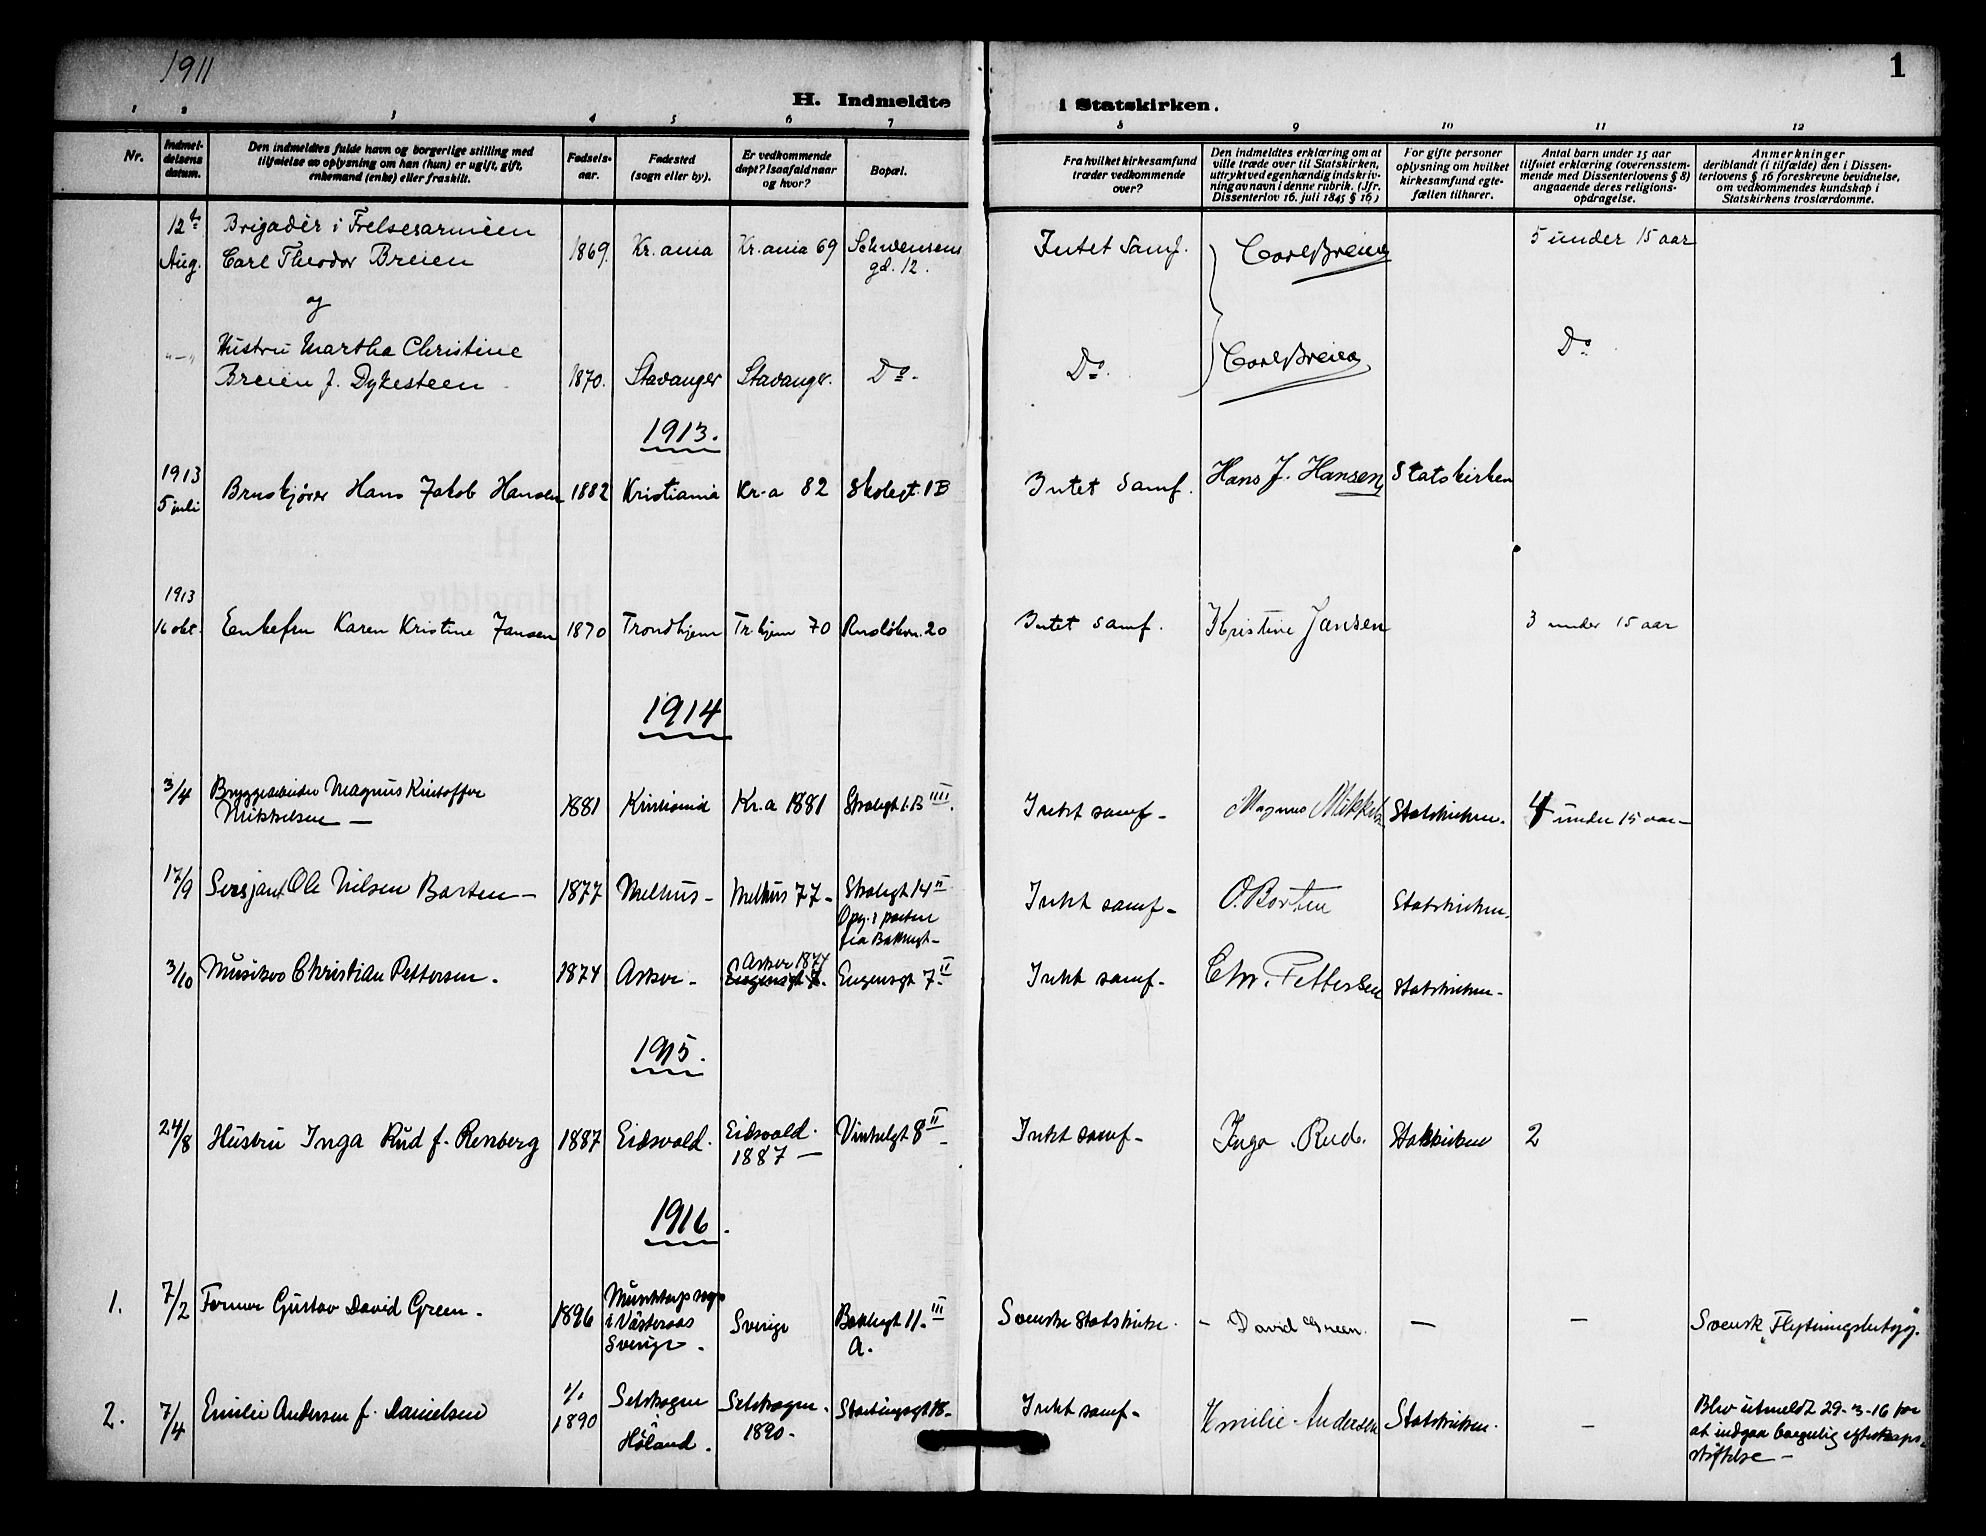 1911
1
H. Indmeldte i Statskirken.
1 2 3 4 5 6 7 8 9 10 11 12
Nr.
Indmel-
delsens
datum.
Den indmeldtes fulde navn og borgerlige stilling med
tilføielse av oplysning om han (hun) er ugift, gift,
enkemand (enke) eller fraskilt.
Fødsels-
aar.
Fødested
(sogn eller by).
Er vedkommende
døpt? Isaafald naar
og hvor?
Bopæl.
Fra hvilket kirkesamfund
træder vedkommende
over?
Den indmeldtes erklæring om at
ville træde over til Statskirken,
uttrykt ved egenhændig indskriv-
ning av navn i denne rubrik. (Jfr.
Dissenterlov 16. juli 1845 § 16)
For gifte personer
oplysning om hvilket
kirkesamfund egte-
fællen tilhører.
Antal barn under 15 aar
tilføiet erklæring (overensstem-
mende med Dissenterlovens § 8)
angaaende deres religions-
opdragelse.
Anmerkninger
deriblandt (i tilfælde) den i Dissen-
terlovens § 16 foreskrevne bevidnelse,
om vedkommendes kundskap i
Statskirkens troslærdomme.
12te Aug. Brigadér i Frelsesarméen
Carl Theodor Breien 1869. Kr.ania Kr.ania 69 Schwensens
gd. 12. Intet Samf. Carl Breien 5 under 15 aar
og
"—" Hustru Martha Christine
Breien f. Dykesteen 1870. Stavanger Stavanger. Do. Do. Carl Breien Do
1913.
1913
5 juli Bruskjører Hans Jakob Hansen 1882 Kristiania Kr.a 82 Skolegt. 1B Intet Samf. Hans J. Hansen Statskirken
1913
16 okt. Enkefru Karen Kristine Jansen 1870 Trondhjem Tr.hjem 70 20 Intet Samf. Kristine Jansen 3 under 15 aar
1914
3/4 Bryggearbeider Magnus Kristoffer
Mikkelsen — 1881 Kristiania Kr.a 1881 Skolegt 1.B IIII. Intet samf - Magnus Mikkelsen Statskirken. 4 under 15 aar -
17/9 Sersjant Ole Nilsen Borten - 1877 Melhus - Melhus 77 - Skolegt 14 II
Opg. i porten
fra Bakkegt - Intet samf - O. Borten Statskirken.
3/10 Musiker Christian Pettersen. 1874 Asker - Asker 1874
Eugensgt 7. Eugensgt 7 II Intet samf - Chr. Pettersen Statskirken -
1915.
24/8 Hustru Inga Rud f. Renberg 1887 Eidsvold. Eidsvold.
1887 — Vinkelgt 8 II - Intet samf - Inga Rud. Statskirken 2
1916.
1. 7/2 Former Gustav David Green. 1896 Munktorp sogn
i Västeraas
Sverige. Sverige Bakkegt 11. III
A. Svenske Statskirke. - David Green. — — Svensk Flytningsbetyg.
2. 7/4 Emilie Andersen f. Danielsen 1/1
1890 Setskogen
Høland. Setskogen.
1890. Intet samf - Emilie Andersen Statskirken. — Blev utmeldt 29-3-16 for
at indgaa borgerlig egteskaps-
stiftelse -